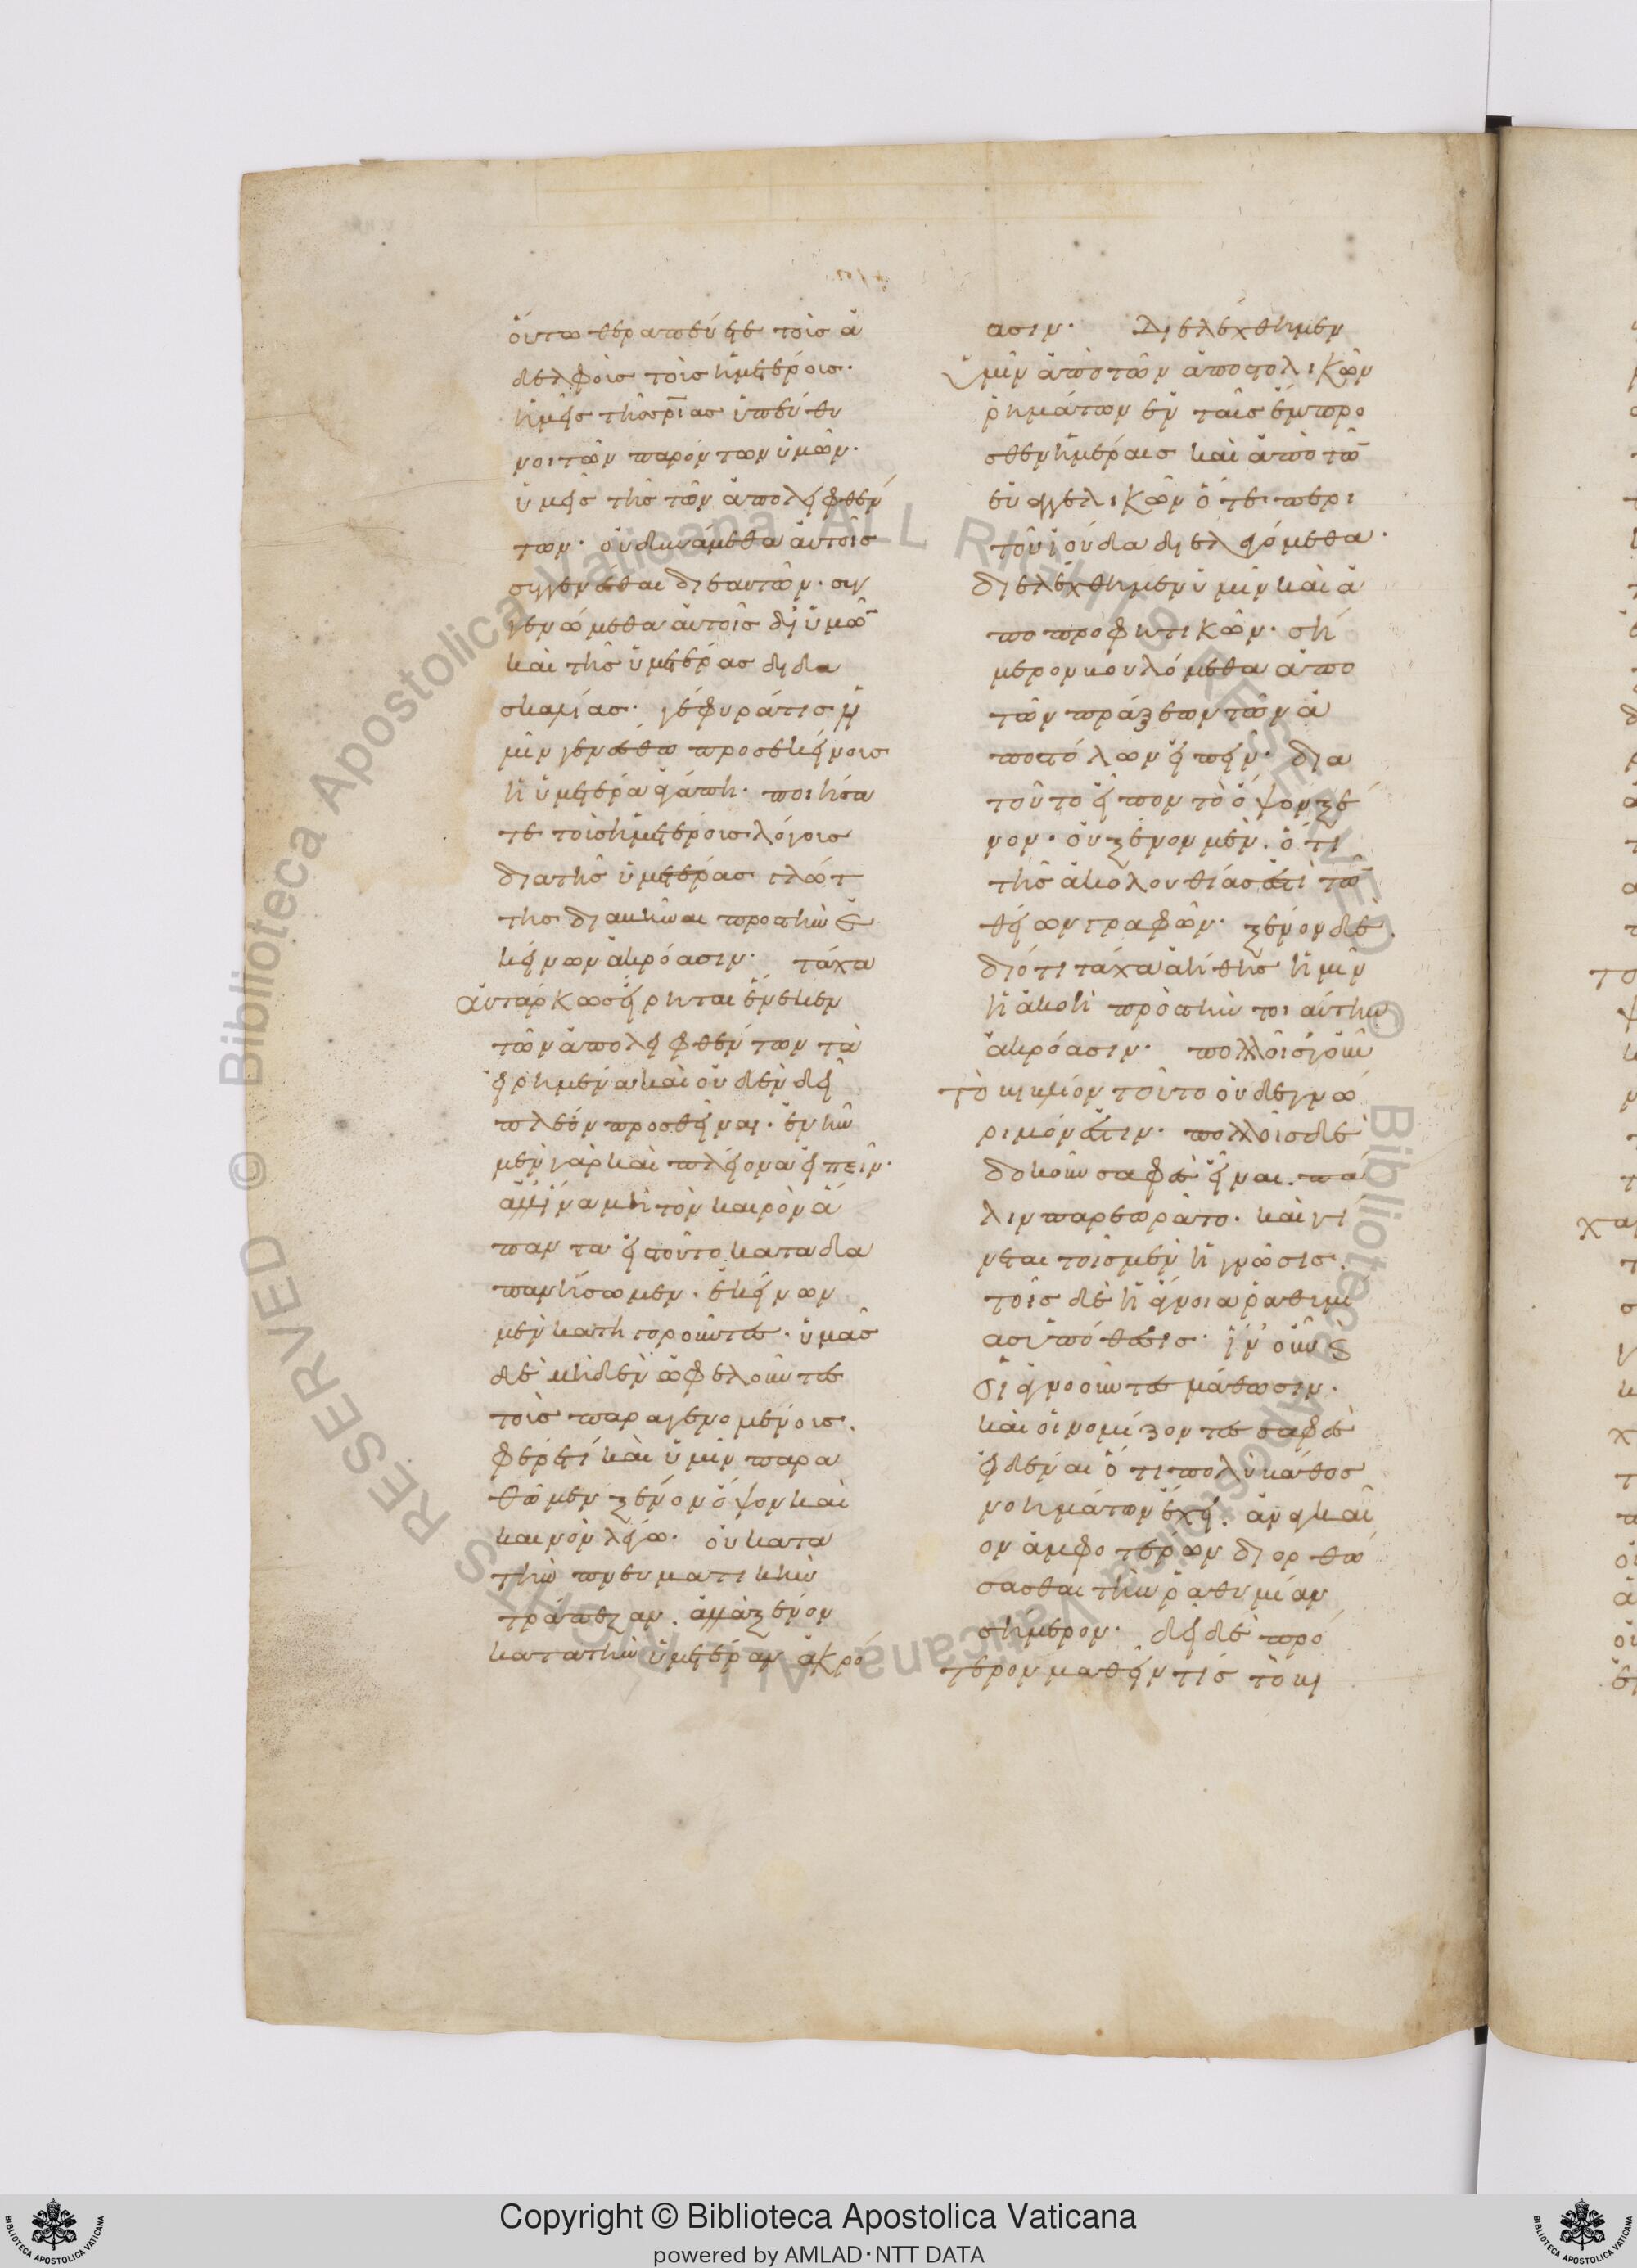 ὄυτω θεραπεύεται τοῖσ ἀ
δελφοῖσ τοῖσ ἡμετέροισ·
ἡμεῖσ τῆσ σρίασ ὑπεύθυ
νοι τῶν παρόντων ὑμῶν·
ὑμεῖσ τῆσ τῶν ἀπολειφθέν
των· οὐ δυνάμεθα αὐτοῖσ
συγγενέσθαι δι εαυτῶν· συγ
γενώμεθα αὐτοῖσ δι ὑμῶν
καὶ τῆσ ὑμετέρασ διδα
σκαλίασ· γέφυρά τισ ἡ
μῖν γενέσθω πρὸσ εκείνουσ
ἡ ὑμετέρα ἀγάπη· ποιήσα
τε τοῖσ ἡμετέροισ λόγοισ
διὰ τῆσ ὑμετέρασ γλώτ
τησ διαβῆναι προσ τὴν ἐ
κείνων ἀκρόασιν· τάχα
αὐτάρκωσ εἴρηται ἕνεκεν
τῶν ἀπολειφθέντων τὰ
εἰρημένα καὶ οὐδὲν δεῖ
πλέον προσθεῖναι· ἐνῆν
μὲν γὰρ καὶ πλείονα εἰπεῖν·
ἀλλ ἵνα μὴ τὸν καιρὸν ἅ
παντα εἰσ τοῦτο καταδα
πανήσωμεν· ἐκείνων
μὲν κατηγοροῦντεσ· ὑμᾶσ
δὲ μηδὲν ὠφελοῦντεσ
τοὺσ παραγενομένουσ·
φέρε τί καὶ ὑμῖν παρα
θῶμεν ξένον ὄψον καὶ
καινὸν λέγω· οὐ κατα
τὴν πνευματικὴν
τράπεζαν· ἀλλὰ ξένον
κατα τὴν ὑμετέραν ἀκρό
ασιν· Διελέχθημεν
ὑμῖν ἀπὸ τῶν ἀποστολικῶν
ῥημάτων ἐν ταῖσ ἔμπρο
σθεν ἡμέραισ καὶ ἀπὸ τῶν
εὐαγγελικῶν ὅτε περι
τοῦ ϊούδα διελεγόμεθα·
διελέχθημεν ὑμῖν καὶ ἀ
πο προφητικῶν· σή
μερον βουλόμεθα ἀπο
τῶν πράξεων τῶν ἀ
ποστόλων εἰπεῖν· δια
τοῦτο εἶπον τὸ ὄψον ξέ
νον· οὐ ξένον μὲν· ὅτι
τῆσ ἀκολουθίασ ἐστὶ τῶν
θείων γραφῶν· ξένον δὲ·
διότι τάχα ἀήθησ ἡμῖν
ἡ ἀκοὴ πρὸσ τὴν τοιαύτην
ἀκρόασιν· πολλοῖσ γοῦν
τὸ βιβλίον τοῦτο οὐδε γνώ
ριμόν ἐστιν· πολλοῖσ δὲ
δοκοῦν σαφὲσ εἶναι· πά
λιν παρεωρᾶτο· καὶ γί
νεται τοῖσ μὲν ἡ γνῶσισ·
τοῖσ δὲ ἡ ἄγνοια ῥαθυμί
ασ ὑπόθεσισ· ἵν οὖν καὶ
οἱ ἀγνοοῦντεσ μάθωσιν·
καὶ οἱ νομίζοντεσ σαφὲσ
εἰδέναι ὅτι πολὺ βάθοσ
νοημάτων ἔχει· ἀναγκαῖ
ον ἀμφοτέρων διορθώ
σασθαι τὴν ῥαθυμίαν
σήμερον· δεῖ δὲ πρό
τερον μαθεῖν τίσ τὸ βι